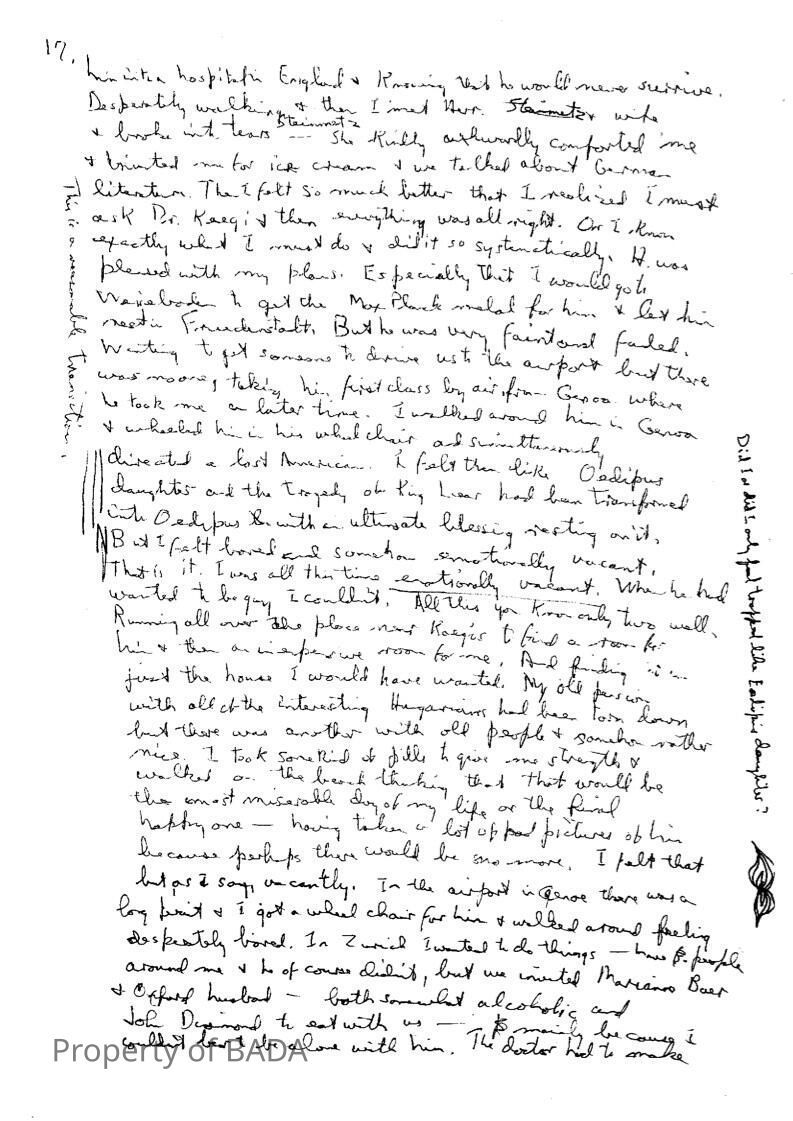 17.
him into a hospital in England & Knowing that he would never survive.
Desperately walking & then I met Herr. Steinmetz & wife
Steinmetz
& broke into tears --- She Kindly awkwardly comforted me
& invited me for ice cream & we talked about German
literature. The I felt so much better that I realized I must
ask Dr. Kaegi & then everything was all right. On I know
exactly what I must do & did it so systematically. H. was
pleased with my plans. Especially that I would go to
Weisbaden to get the Max Planck medal for him & let him
rest in Freudenstadt. But he was very faint and faded.
Waiting to get someone to drive us to the airport but there
was moore, taking him first class by air from Genoa where
he took me on later time. I walked around him in Genoa
& wheeled him in his wheel chair and simultaneously
directed a lost American. I felt then like Oedipus
daughter and the tragedy of King Lear had been transformed
into Oedipus with an ultimate blessing resting on it.
But I felt bored and somehow emotionally vacant.
That is it. I was all this time emotionally vacant. When he had
wanted to be gay I couldn't. All this you Know only two well.
Running all over the place near Kaegis to find a room for
him & then an inexpensive room for me. And finding it in
just the house I would have wanted. My old pension
with all of the interesting Hungarians had been torn down
but there was another with old people & somehow rather
nice. I took some Kind of pills to give me strength &
walked on the beach thinking that that would be
the most miserable day of my life or the final
happy one — having taken a lot of pictures of him
because perhaps there would be no more. I felt that
but, as I say, vacantly. In the airport in Genoe there was a
long wait & I got a wheel chair for him & walked around feeling
desperately bored. In Zurich I wanted to do things — have people
around me & he of course didn't, but we invited Marianne Baer
& Oxford husband — both somewhat alcoholic and
John Desmond to eat with us — mainly because I
couldn't bear to be alone with him. The doctor had to make
This is a reasonable transition.
Did I or did I only feel trapped like Eodipus daughter?
Property of BADA